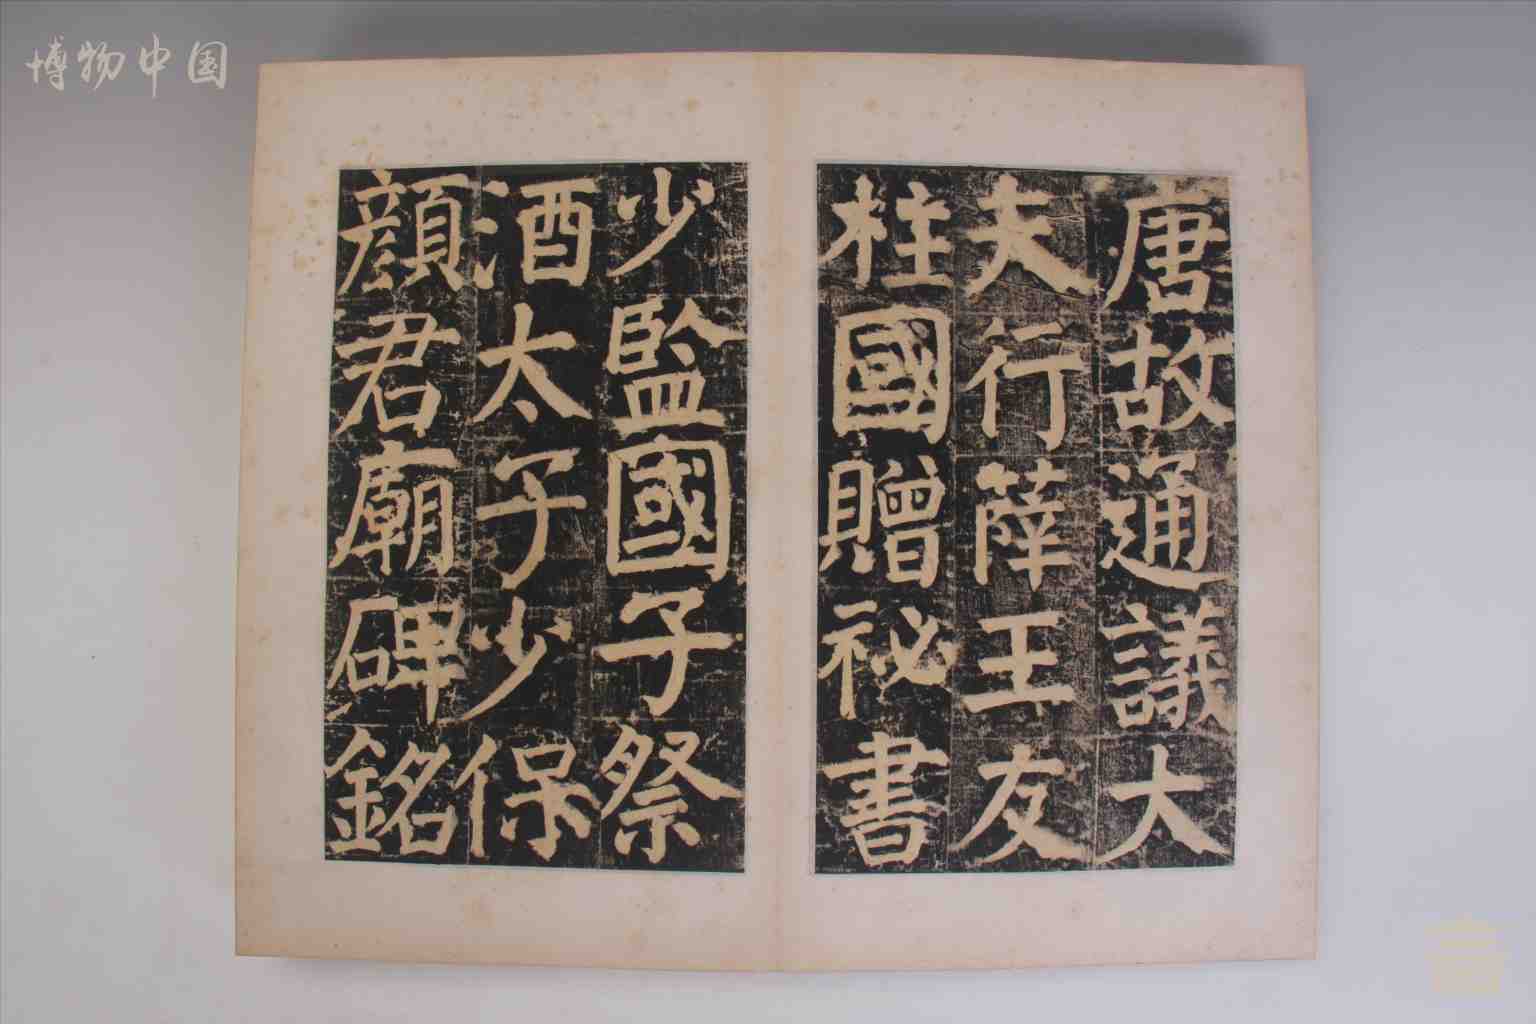 博物中国
唐故通議大
夫行薛王友
柱國贈祕書
少監國子祭
酒太子少保
顏君廟碑銘